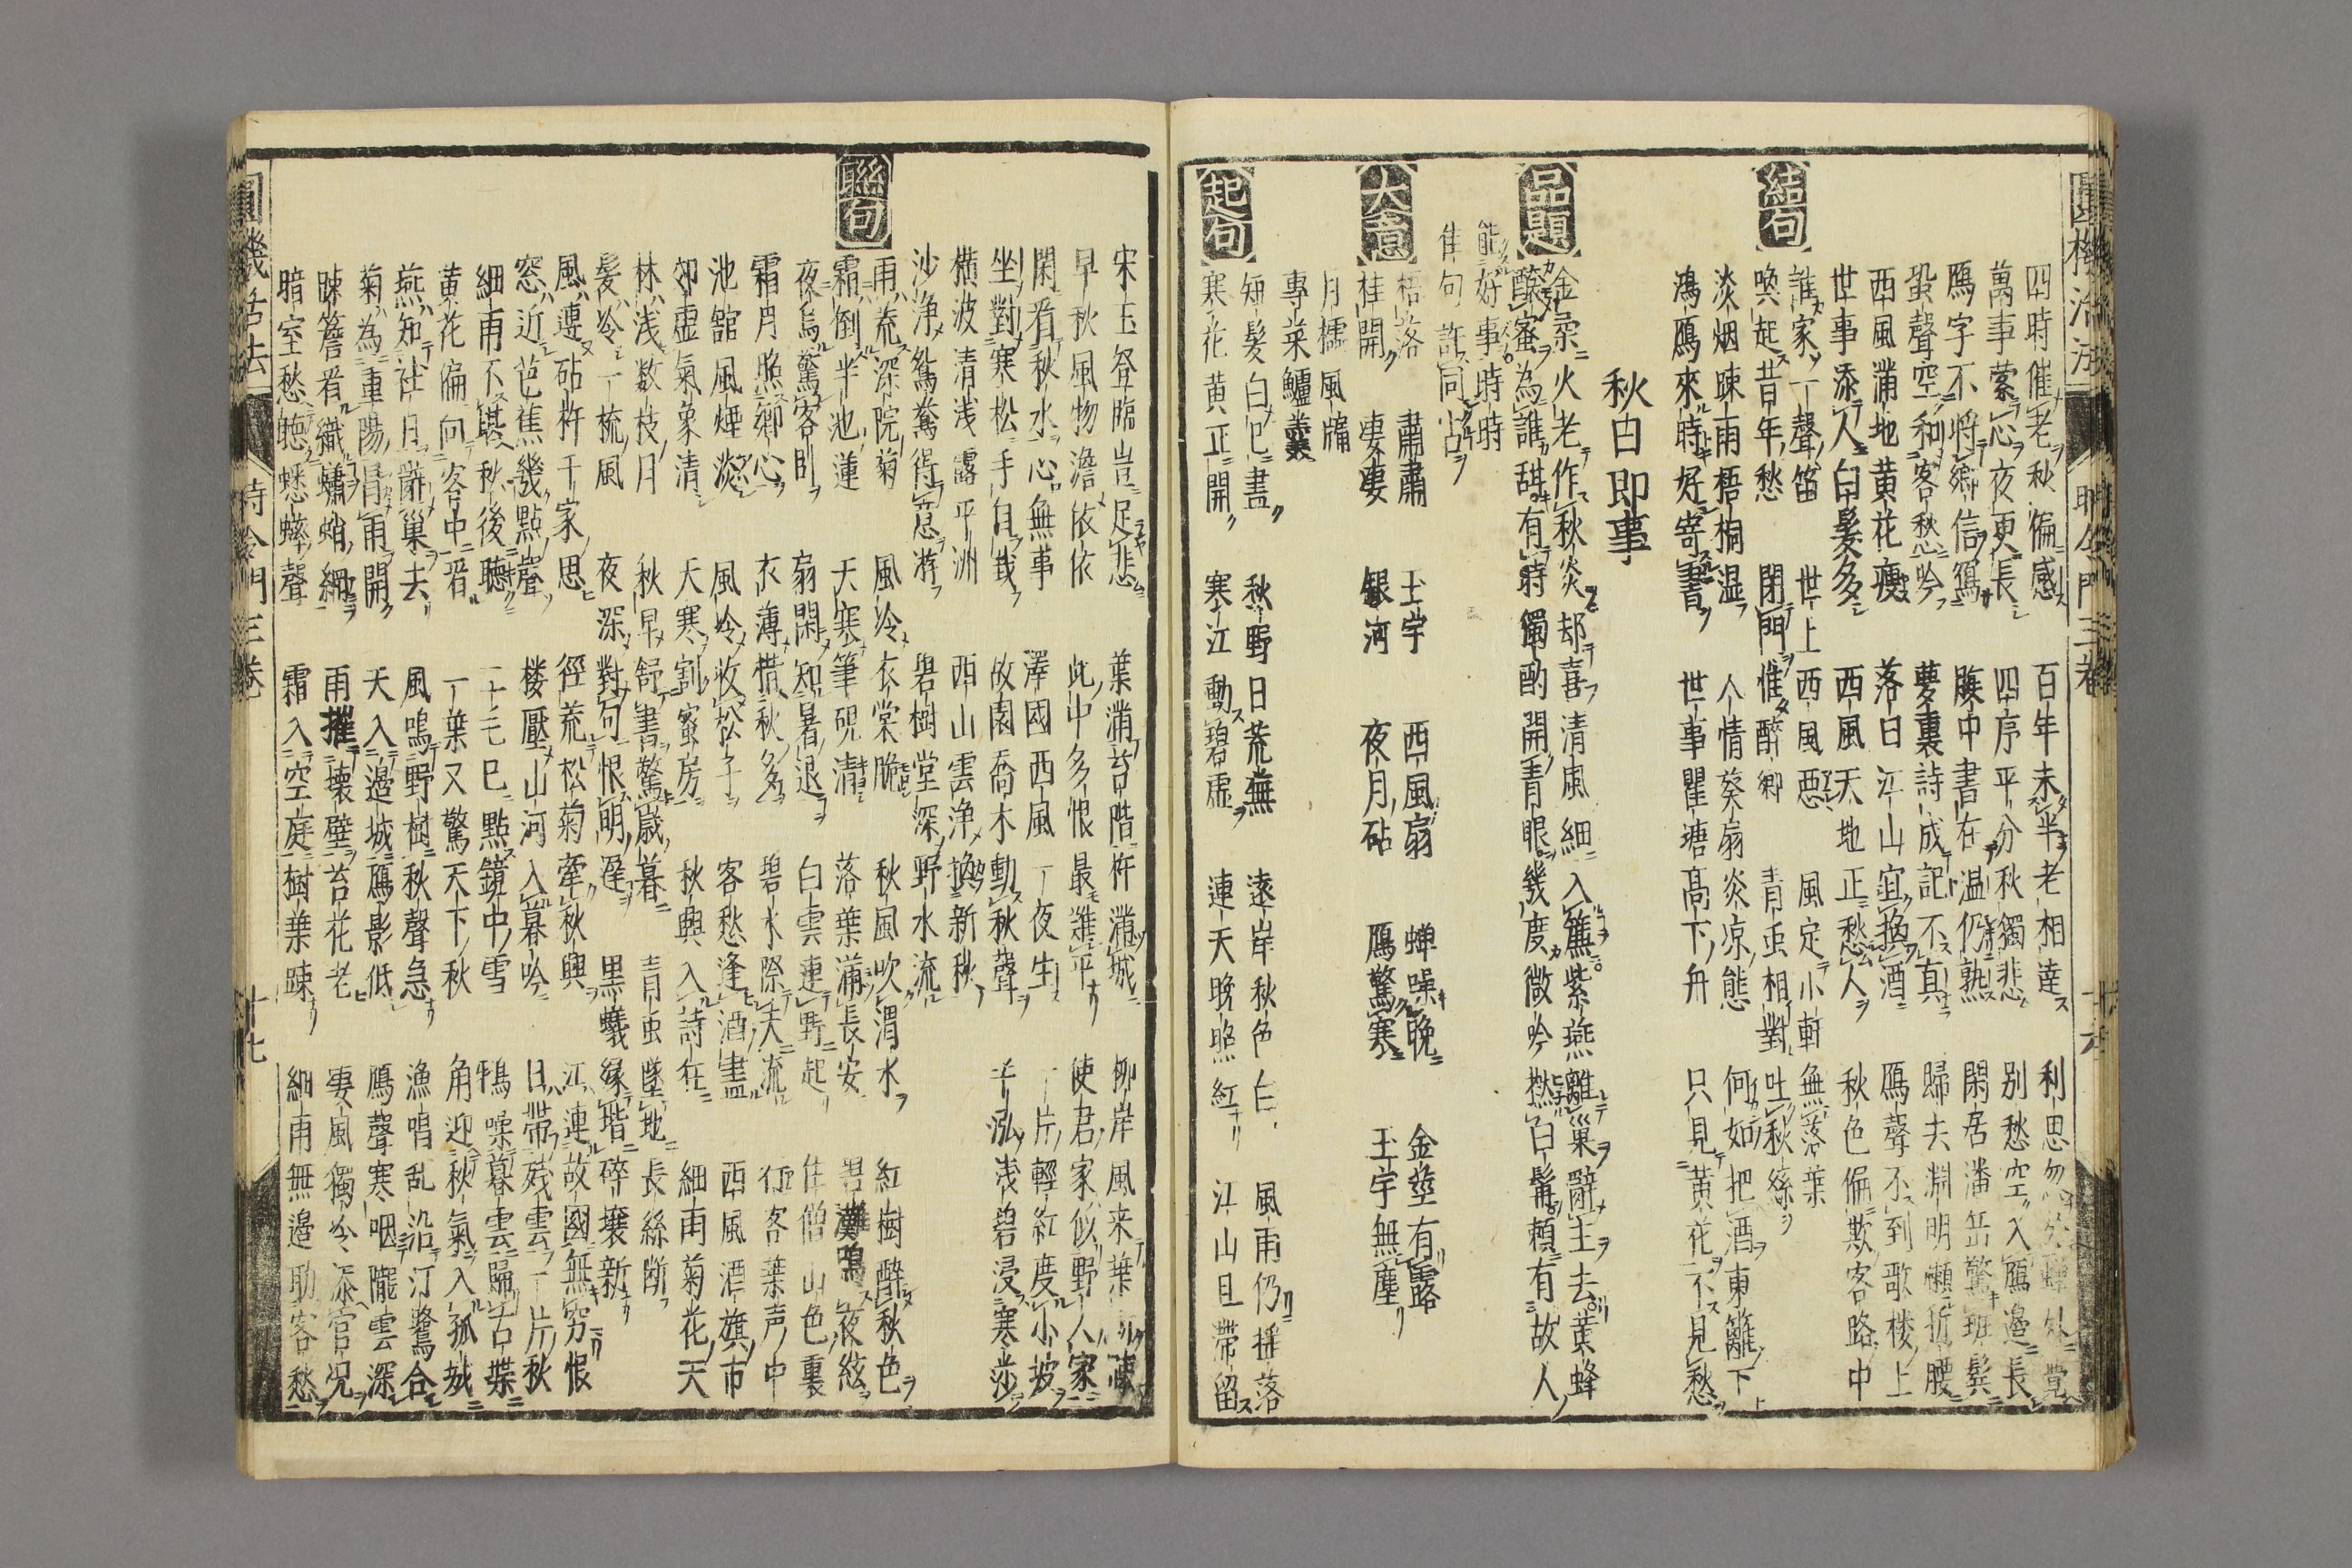 四時催老秋偏感 百年未半老相逹 利思勿
萬事縈心夜更長 四序平分秋獨悲 別愁空入鴈邉長
鴈字不將鄉信寫 牋中書在温仍熟 閑居潘岳驚班鬂
蛩聲空和客愁吟 夢裏詩成記不真 歸去淵明懶折腰
西風滿地黄花瘦 落日江山宜換酒 鴈聲不到歌楼上
世事添人白髪多 西風天地正愁人 秋色偏欺客路中
結句
誰家一聲笛 世上西風惡 風定小軒無落葉
喚起昔年愁 閉門惟醉鄉 青虫相對吐秋絲
淡烟踈雨梧桐湿 人情葵扇炎凉態 何如把酒東籬下
鴻鴈來時好寄書 世事瞿塘髙下舟 只見黄花不見愁
秋日即事
品題
金柔火老作秋炎 却喜清風細入簾 紫燕離巢辭主去 黄蜂
釀蜜為誰甜 有時獨酌開青眼 幾度微吟撚白髯 頼有故人
能好事時時
佳句許同拈
大意
梧落 肅肅 玉宇 西風扇 蝉噪晩 金莖有露
桂開 凄凄 銀河 夜月砧 鴈驚寒 玉宇無塵
月櫺風牖
專菜鱸羮
起句
短髪白已盡 秋野日荒蕪 遠岸秋色白 風雨仍揺落
寒花黄正開 寒江動碧虚 連天晩照紅 江山且帶留
宋玉登臨豈足悲 葉滿苔階杵滿城 柳岸風来葉
早秋風物澹依依 此中多恨最難平 使君家似野人家
閑看秋水心無事 澤國西風一夜生 一片輕紅度小坡
坐對寒松手自栽 故園喬木動秋聲 半泓浅碧浸寒莎
横波清浅露平洲 西山雲浄換新秋
沙浄鴛鴦得意游 碧樹堂深野水流
聯句
雨荒深院菊 風冷衣裳脆 秋風吹渭水 紅樹醉秋色
霜倒半池蓮 天寒筆硯清 落葉滿長安 碧灘鳴夜絃
夜烏驚客卧 扇閑知暑退 白雲連野起 佳僧山色裏
霜月照鄉心 衣薄惜秋多 碧水際天流 征客葉声中
池舘風煙淡 風冷收松子 客愁逢酒盡 西風酒旗市
郊虚氣象清 天寒割蜜房 秋興入詩在 細雨菊花天
林浅数枝月 秋早舒書驚歳暮 青虫墜地長絲断
髪冷一梳風 夜深對句恨明遅 黒蟻縁堦碎壌新
風邉砧杵千家思 徑荒松菊牽秋興 江連故國無窮恨
窓近芭蕉幾點聲 楼壓山河入暮吟 日帶残雲一片秋
細雨不堪秋後聽 二毛已點鏡中雪 鴉噪暮雲歸古堞
黄花偏向客中看 一葉又驚天下秋 角迎秋氣入孤城
燕知社日辭巢去 風鳴野樹秋聲急 漁唱乱沿汀鷺合
菊為重陽冐雨開 天入邉城鴈影低 鴈聲寒咽隴雲深
踈簷看織蠨蛸網 雨摧壊壁苔花老 凄風獨冷添官况
暗室愁聴蟋蟀聲 霜入空庭樹葉踈 細雨無邉助客愁
圓機活法 時令門三卷 十七